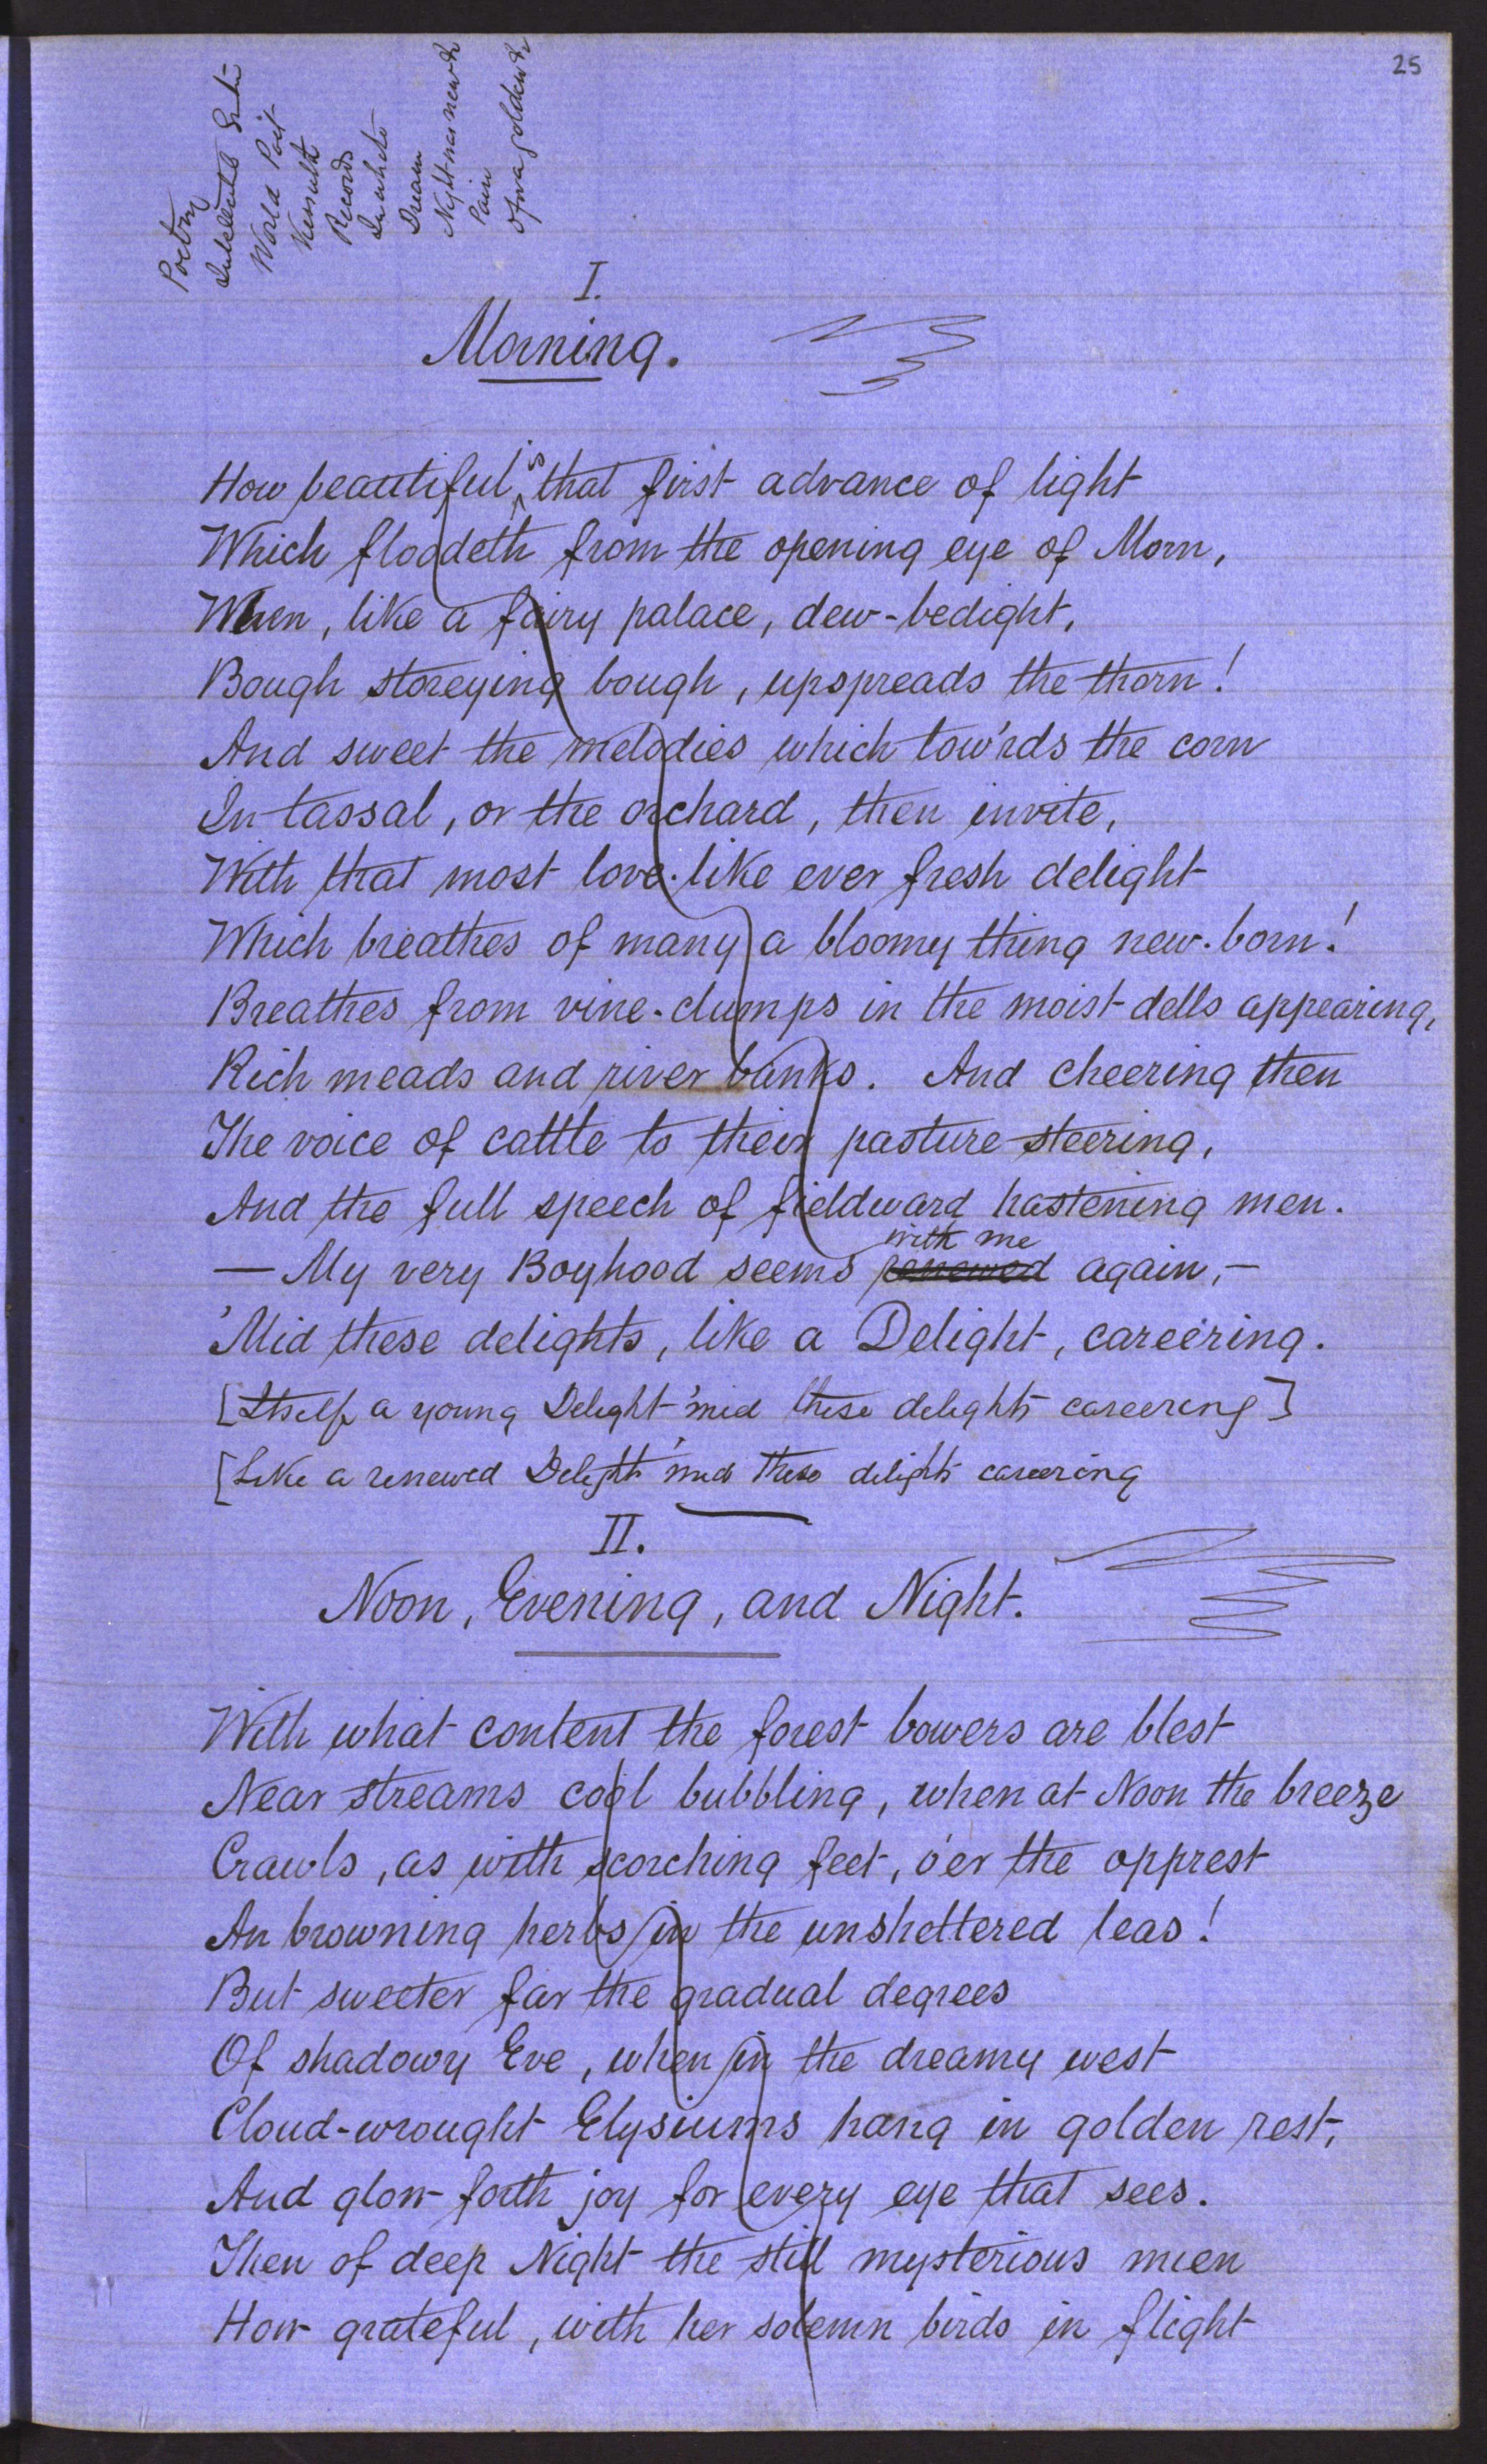 25
Poetry
World Poet
Records
Dream
Pain
I.
Morning.
How beautiful is that first advance of light
Which floodeth from the opening eye of Morn,
When, like a fairy palace, dew-bedight,
Bough storeying bough, upspreads the thorn!
And sweet the melodies which tow'rds the corn
In tassal, or the orchard, then invite,
With that most love-like ever fresh delight
Which breathes of many a bloomy thing new-born!
Breathes from vine-clumps in the moist dells appearing,
Rich meads and river banks. And cheering then
The voice of cattle to their pasture steering,
And the full speech of fieldward hastening men.
— My very Boyhood seems renewed with me again,—
'Mid these delights, like a Delight, careering.
[Itself a young Delight 'mid these delights careering]
[Like a renewed Delight 'mid these delights careering
II.
Noon, Evening, and Night.
With what content the forest bowers are blest
Near streams cool bubbling, when at Noon the breeze
Crawls, as with scorching feet, o'er the opprest
An browning herbs in the unsheltered leas!
But sweeter far the gradual degrees
Of shadowy Eve, when in the dreamy west
Cloud-wrought Elysiums hang in golden rest,
And glow forth joy for every eye that sees.
Then of deep Night the still mysterious mien
How grateful, with her solemn birds in flight